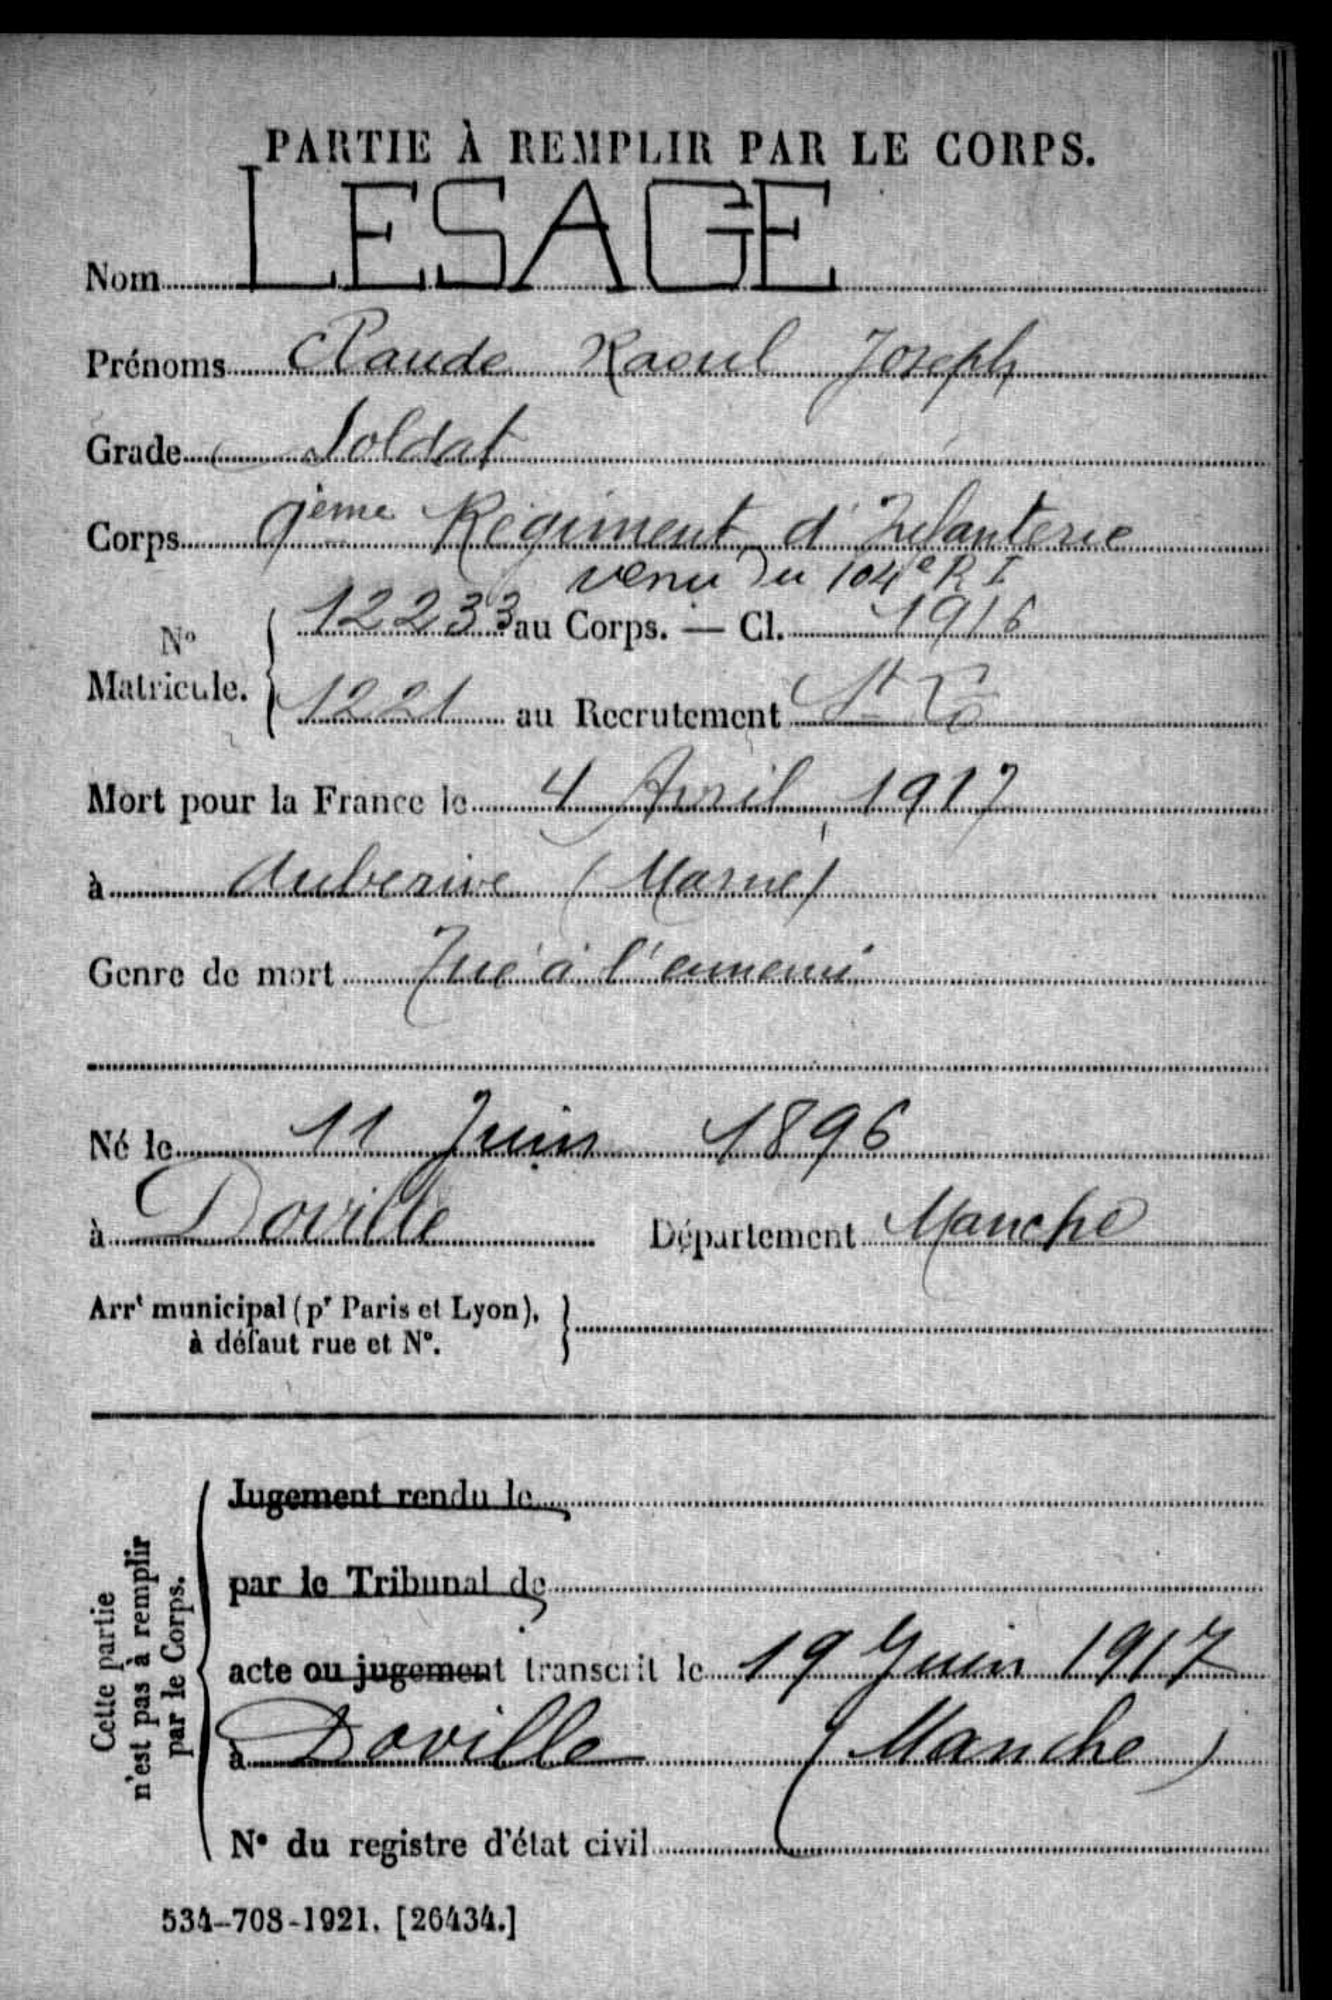 PARTIE À REMPLIR PAR LE CORPS.
Nom LESAGE
Prénoms Claude Raoul Joseph
Grade Soldat
Corps 9ème Régiment d'Infanterie
venu du 104e R I
12233 au Corps. — Cl. 1916
No Matricule.
1221 au Recrutement St Lô
Mort pour la France le 4 Avril 1917
à Auberive (Marne)
Genre de mort Tué à l'ennemi
Né le 11 Juin 1896
à Doville Département Manche
Arrt municipal (pr Paris et Lyon),
à défaut rue et No.
Cette partie
n'est pas à remplir
par le Corps.
Jugement rendu le
par le Tribunal de
acte ou jugement transcrit le 19 Juin 1917
à Doville (Manche)
No du registre d'état civil
534-708-1921. [26434.]